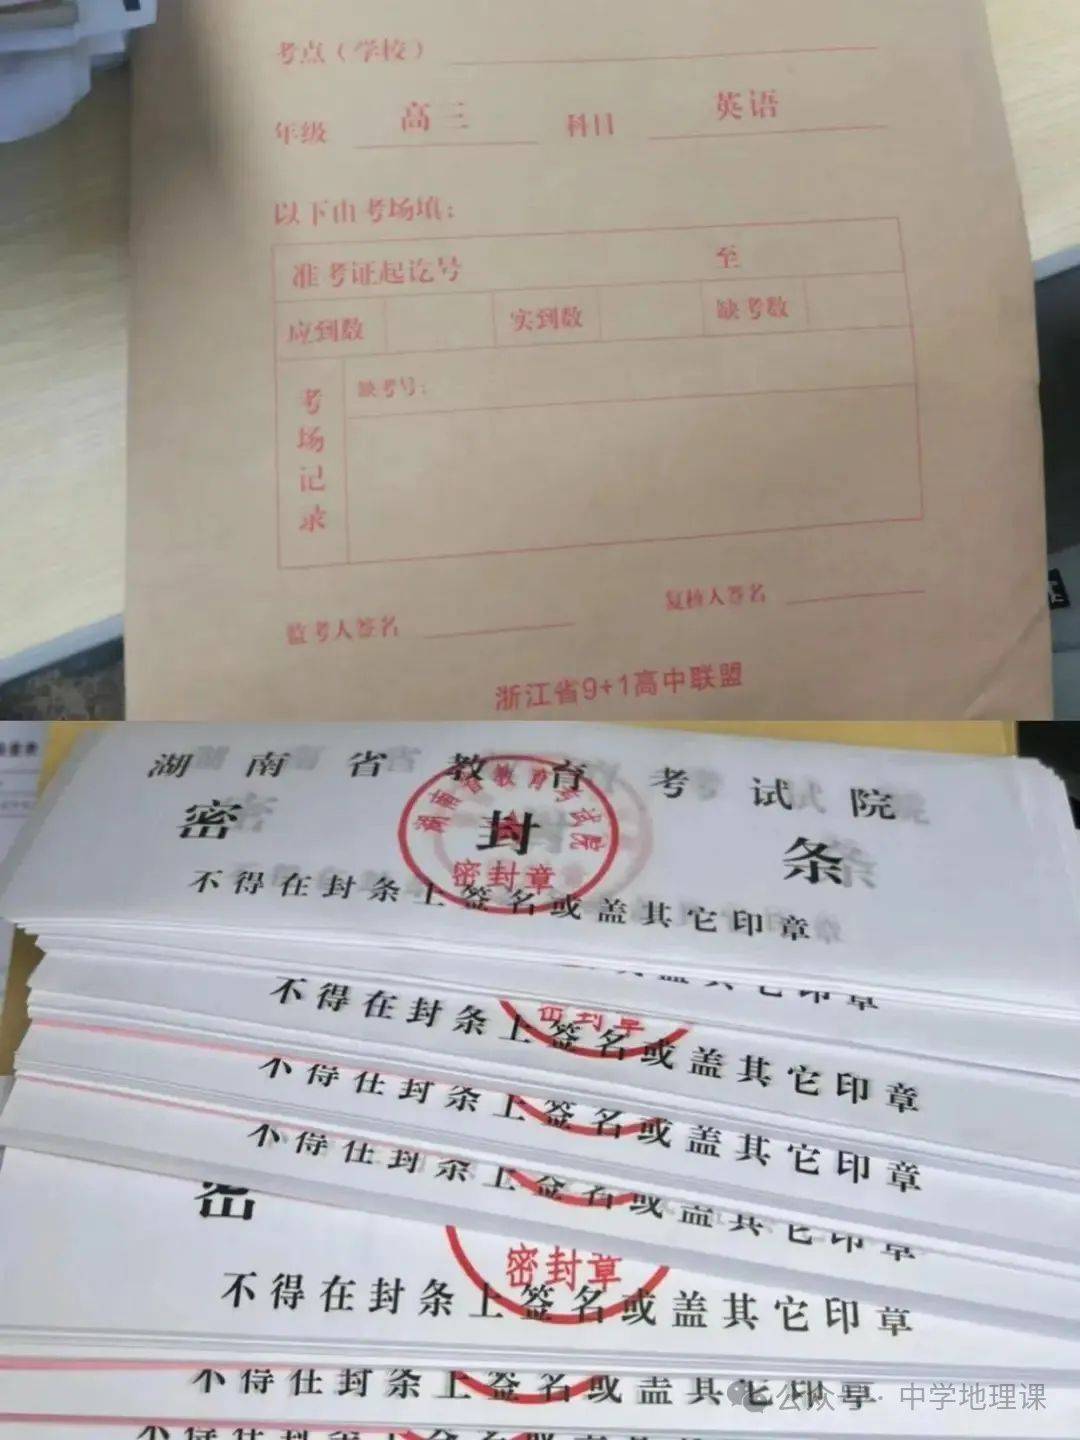 考点（学校）
年级 高三 科目 英语
以下由考场填：
准考证起讫号 至
应到数 实到数 缺考数
考场记录
缺考号：
监考人签名 复核人签名
浙江省9+1高中联盟
湖南省教育考试院
密封条
湖南省教育考试院
密封章
不得在封条上签名或盖其它印章
密封章
不得在封条上签名或盖其它印章
不得在封条上签名或盖其它印章
不得在封条上签名或盖其它印章
密
密封章
不得在封条上签名或盖其它印章
不得在封条上签名或盖其它印章
公众号 · 中学地理课